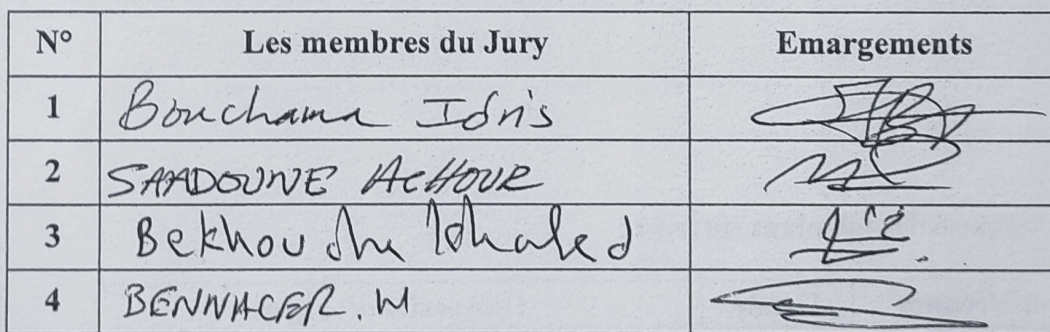 N° Les membres du Jury Emargements
1 Bouchama Idris
2 SAADOUNE ACHOUR
3 Bekhouche Khaled
4 BENNACER. W